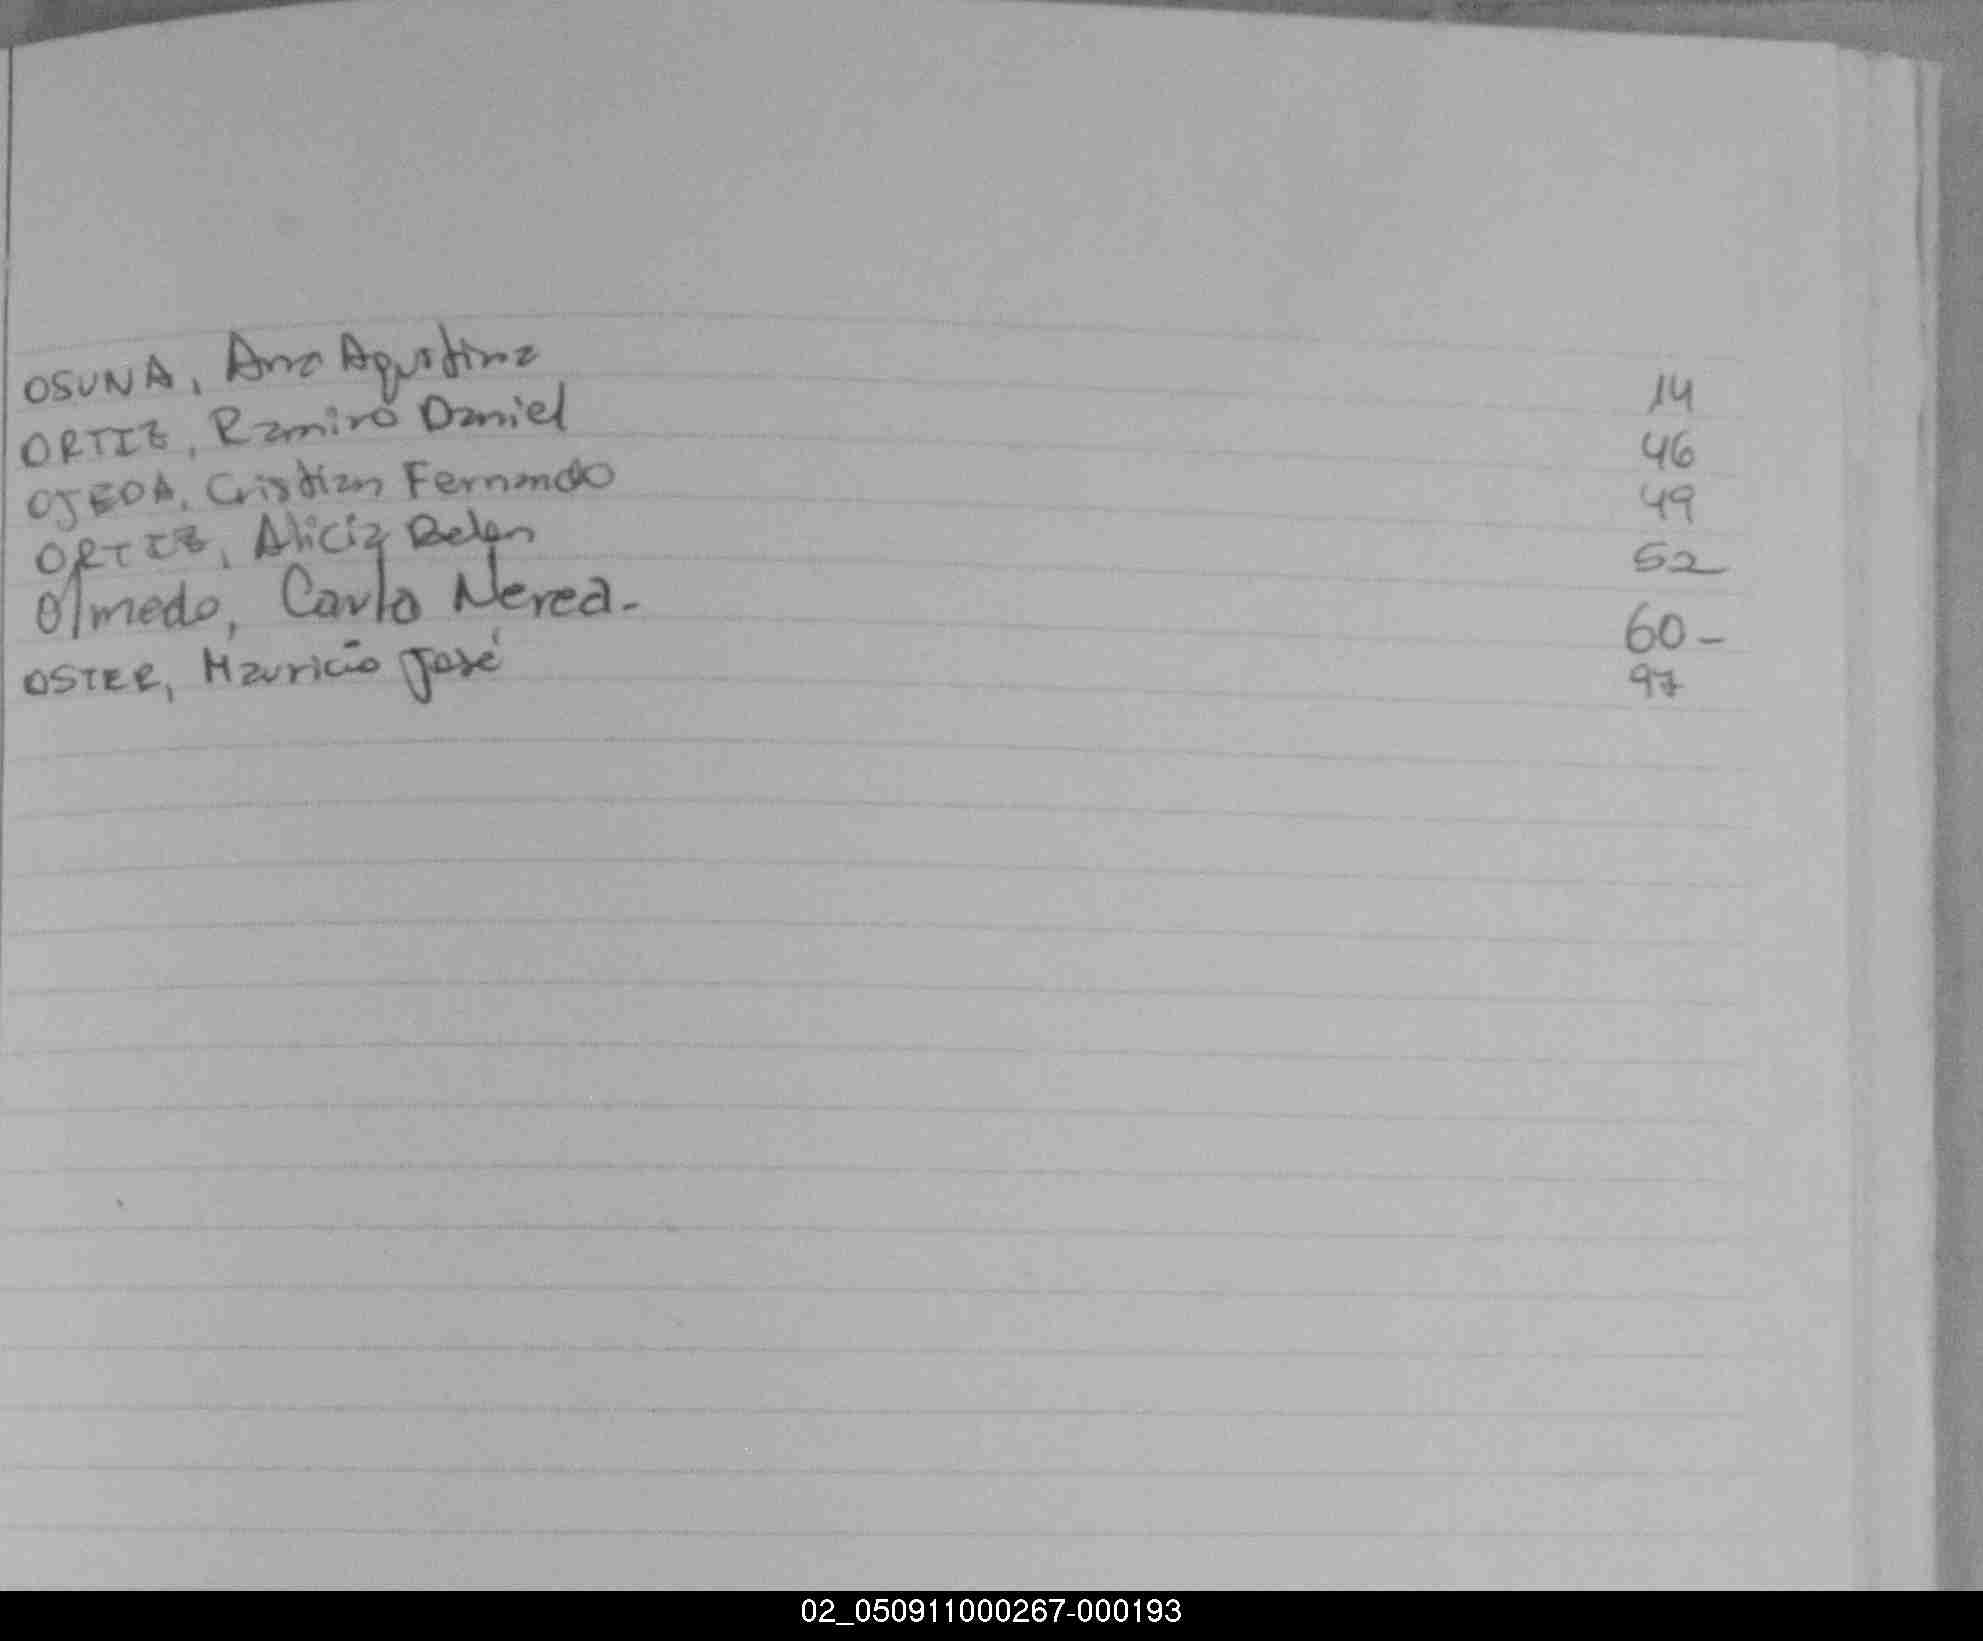 OSUNA, Ana Agustina 14
ORTIZ, Ramiro Daniel 46
OJEDA, Cristian Fernando 49
ORTIZ, Alicia Belen 52
Olmedo, Carla Nerea. 60-
OSTER, Mauricio José 97
02_050911000267-000193